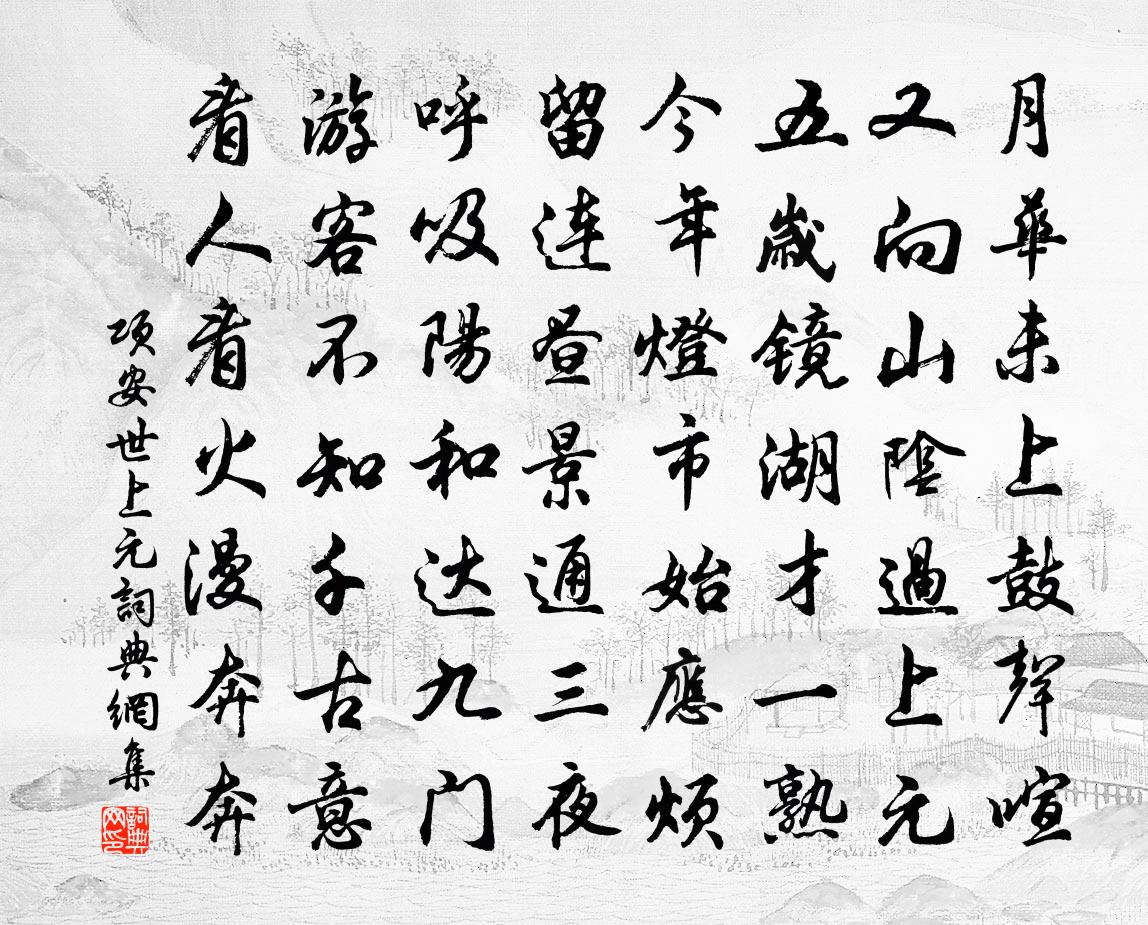 月華未上鼓聲喧
又向山陰過上元
五歲镜湖才一熟
今年燈市始應煩
留连昼景通三夜
呼吸陽和达九门
游客不知千古意
看人看火漫奔奔
项安世上元詞典網集
詞典網印